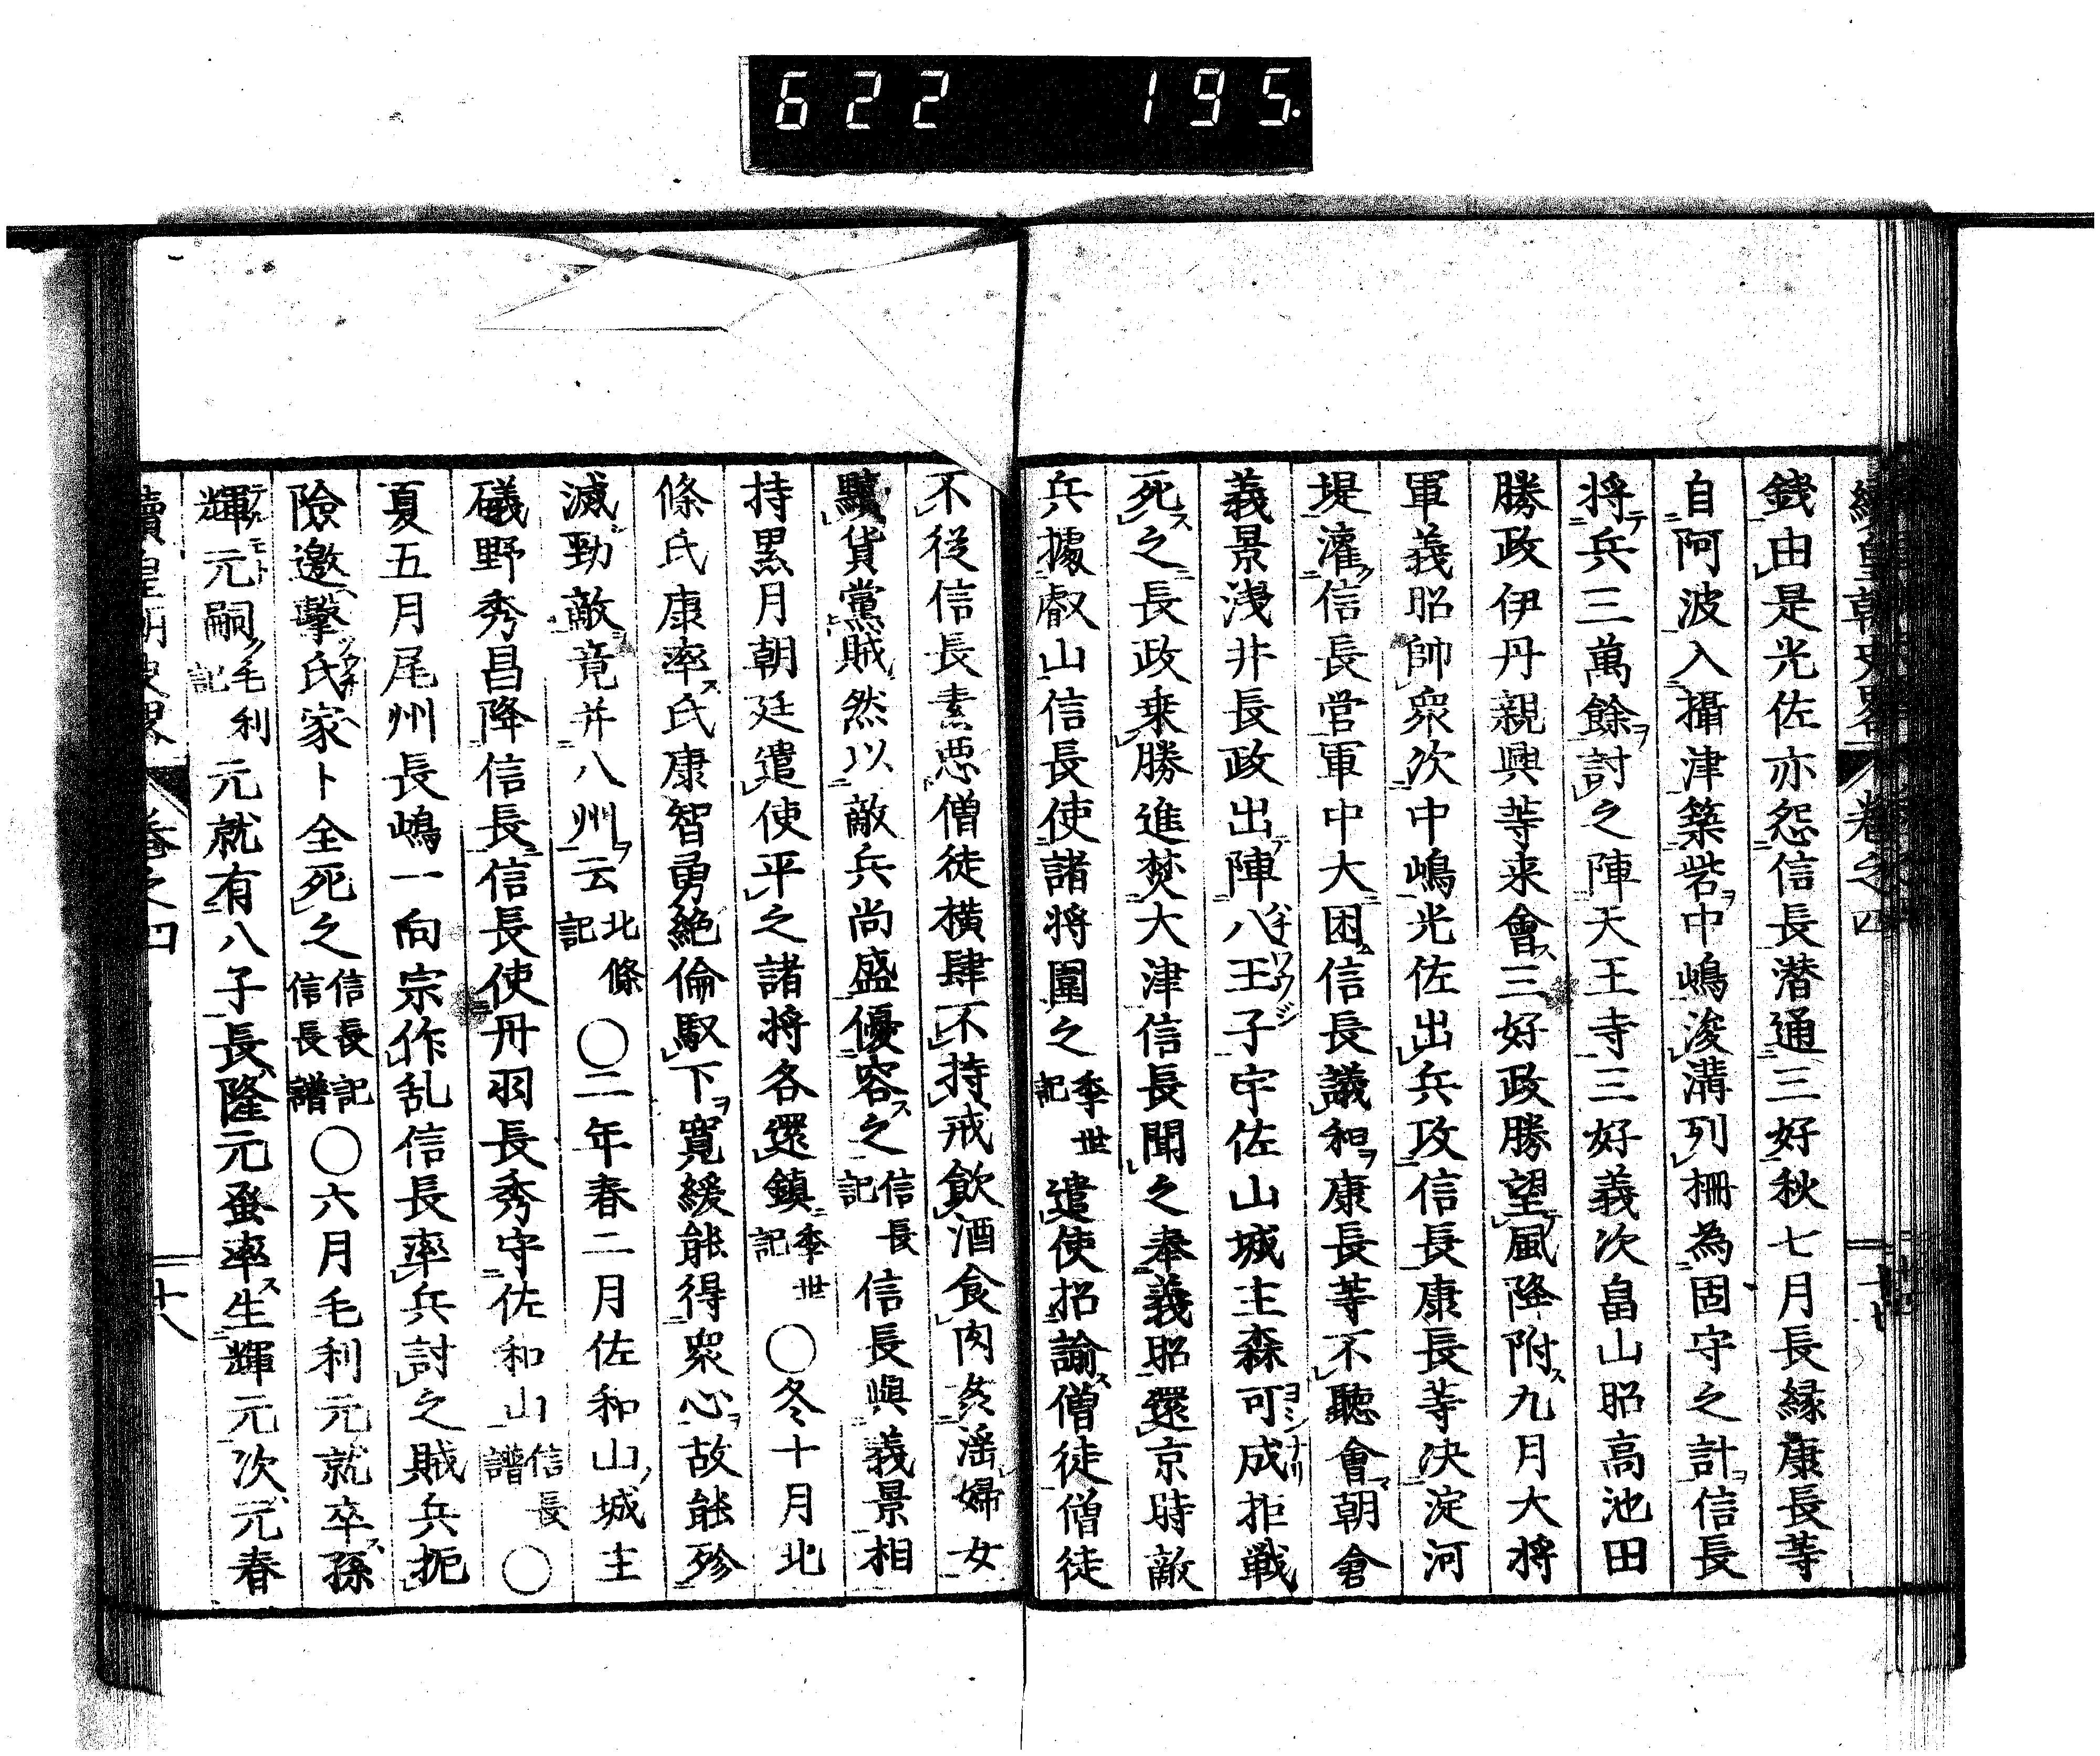 622 195.
續皇朝史畧 卷之四 十七
錢由是光佐亦怨信長潜通三好秋七月長縁康長等
自阿波入攝津築砦中嶋浚溝列柵為固守之計信長
将兵三萬餘討之陣天王寺三好義次畠山昭高池田
勝政伊丹親興等来會三好政勝望風降附九月大將
軍義昭帥衆次中嶋光佐出兵攻信長康長等决淀河
堤灌信長営軍中大困信長議和康長等不聽會朝倉
義景浅井長政出陣八王子宇佐山城主森可成拒戦
死之長政乗勝進焚大津信長聞之奉義昭還京時敵
兵據叡山信長使諸将圍之季世記遣使招諭僧徒僧徒
不從信長素惡僧徒横肆不持戒飲酒食肉姦淫婦女
黷貨黨賊然以敵兵尚盛優容之信長記信長與義景相
持累月朝廷遣使平之諸将各還鎮季世記〇冬十月北
條氏康率氏康智勇絶倫馭下寛緩能得衆心故能殄
滅勁敵竟并八州云北條記〇二年春二月佐和山城主
礒野秀昌降信長信長使丹羽長秀守佐和山信長譜〇
夏五月尾州長嶋一向宗作乱信長率兵討之賊兵扼
險邀撃氏家卜全死之信長記信長譜〇六月毛利元就卒孫
輝元嗣毛利記元就有八子長隆元蚤率生輝元次元春
續皇朝史畧 卷之四 十八